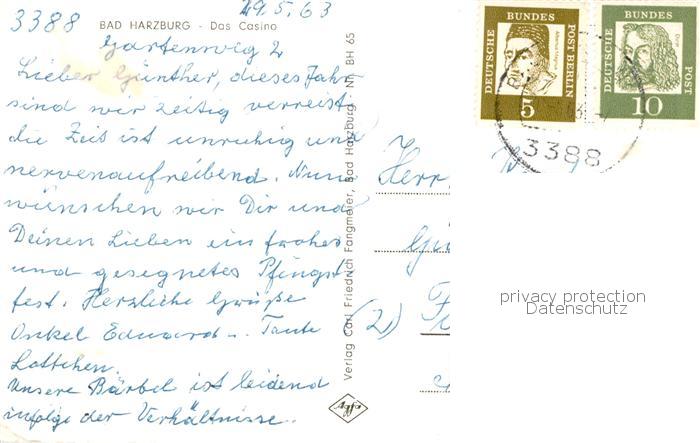 3388
29.5.63
BAD HARZBURG - Das Casino
Gartenweg 2
Lieber Günther, dieses Jahr
sind wir zeitig verreist
die Zeit ist unruhig und
nervenaufreibend. Nun
wünschen wir Dir und
Deinen Lieben ein frohes
und gesegnetes Pfingst
fest. Herzliche Grüße
Onkel Eduard u. Tante
Lottchen.
Unsere Bärbel ist leidend
infolge der Verhältnisse.
Verlag Carl Friedrich Fangmeier, Bad Harzburg Nr. BH 65
Agfa
DEUTSCHE BUNDES POST BERLIN
5
DEUTSCHE BUNDES POST
Dürer
10
3388
Herr
(2)
privacy protection
Datenschutz